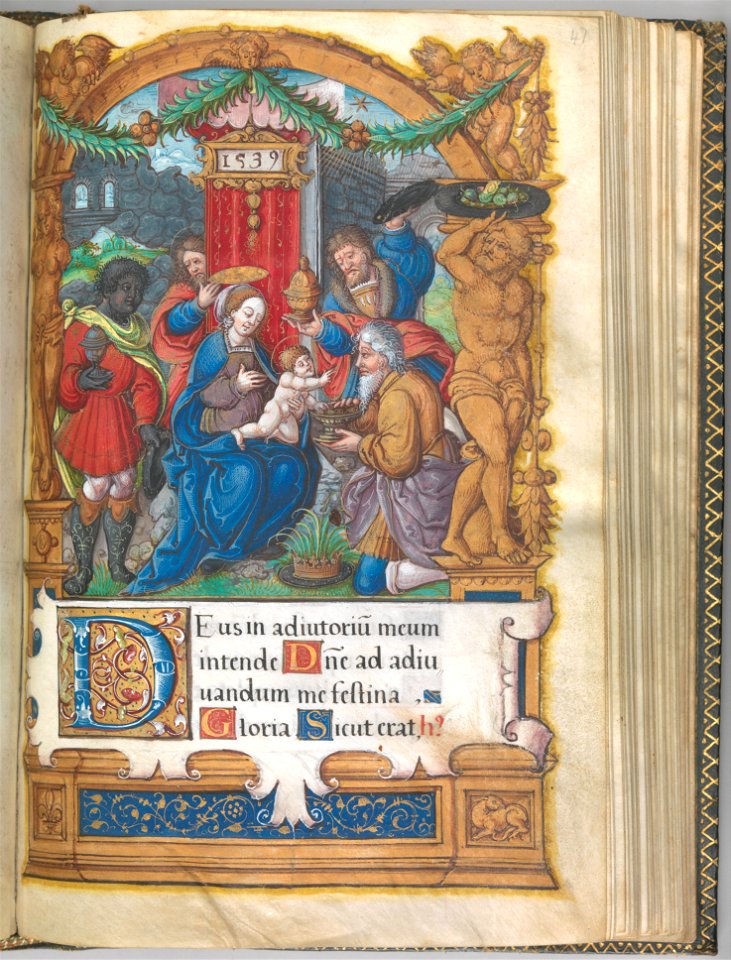 47
1539
Deus in adiutoriū meum
intende Dn̄e ad adiu
uandum me festina
Gloria Sicut erat, h?